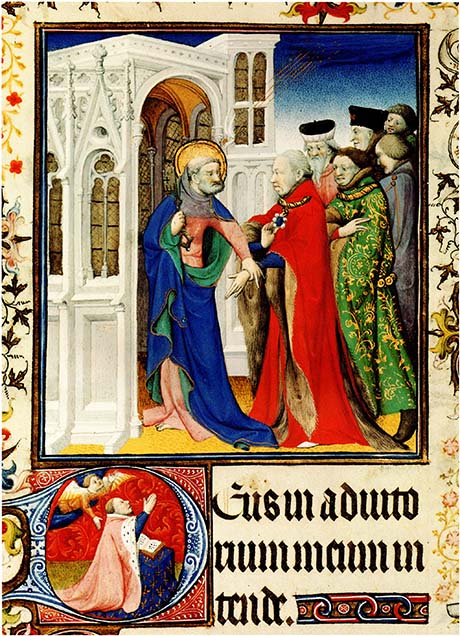 DEus in adiuto
rium meum in
tende.